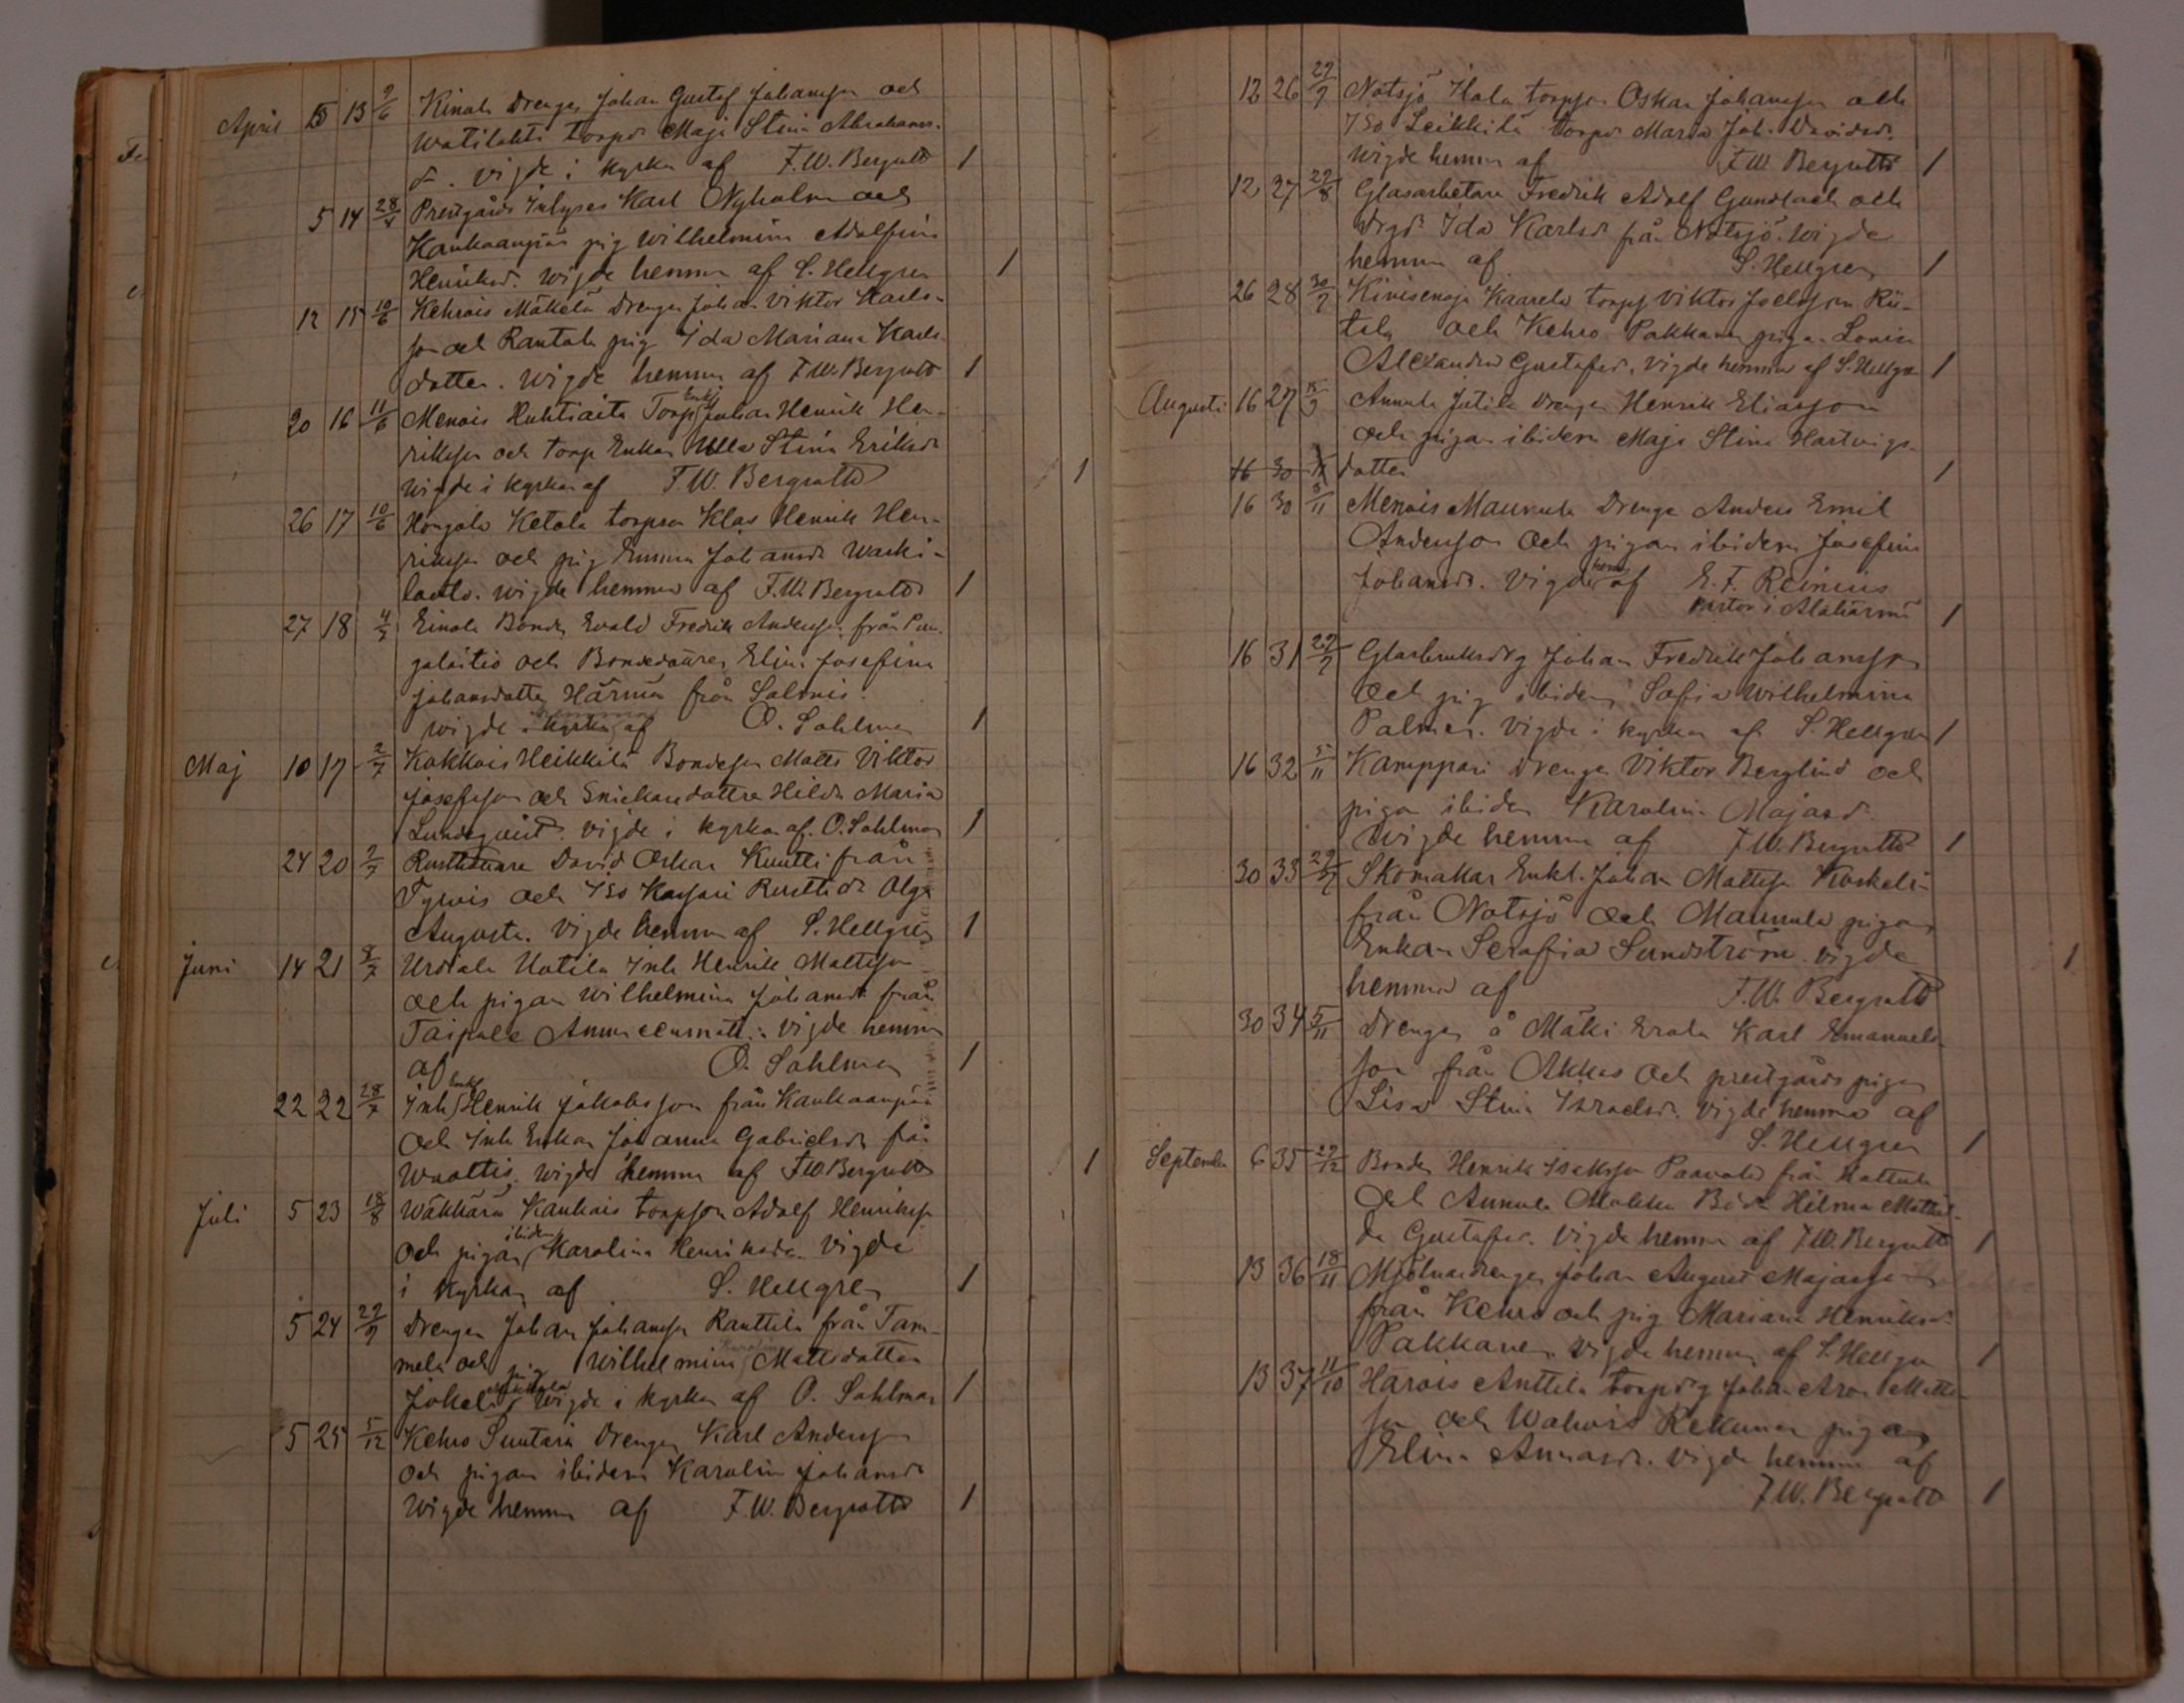 April 5 13 9/6 Kinala Drengen Johan Gustaf Johansson och
Watilahti torpd. Maja Stina Abrahams-
d. vigde i kyrkan af F.W. Bergroth 1
5 14 28/4 Prestgårds Inhyses Karl Nyholm och
Kankaanpää pig. Wilhelmina Adolfina
Henriksd. wigde hemma af S. Hellgren 1
12 15 10/6 Kehrois Mäkelä Drengen Johan Viktor Karls-
son och Rantala pig. Ida Mariana Karls-
dotter. wigde hemma af F.W. Bergroth 1
20 16 11/6 Menois Huhtiaita Torp. Enkl. Johan Henrik Hen-
riksson och torp Enkan Ulla Stina Eriksd.
wigde i kyrkan af F.W. Bergroth 1
26 17 10/6 Hongola Ketola torpson Klas Henrik Hen-
riksson och pig. Emma Johansd. Warki-
wigde hemma af F.W. Bergroth 1
27 18 4/7 Einola Bonden Evald Fredrik Andersson från Pun-
galaitio och Bondedottren Elina Josefina
Johansdotter Härmä från Salmis.
wigde i kyrkan af O. Sahlman 1
Maj 10 19 2/7 Kokkois Heikkilä Bondeson Matts Viktor
Josefsson och Snickaredottren Hilda Maria
Lundqvist. vigde i kyrkan af O. Sahlman 1
24 20 2/7 Rusthållare David Oskar Kuutti från
Tyrvis och Iso Kassari Rusth. dr Olga
Augusta. Vigde hemma af S. Hellgren 1
Juni 14 21 8/7 Urdiala Uotila Inh. Henrik Mattsson
och pigan Wilhelmina Johansd. från
Taipale vigde hemma
af O. Sahlman 1
22 22 28/7 Inh. Enkl. Henrik Jakobsson från Kankaanpää
och Inh. Enkan Johanna Gabrielsd. från
Wuoltis. wigde hemma af F.W. Bergroth 1
Juli 5 23 18/8 Wäkkärä Kankais torpson Adolf Henriksson
och pigan ibidem Karolina Henriksdr. Vigde
i kyrkan af S. Hellgren 1
5 24 29/9 Drengen Johan Johansson Ranttila från Tam-
mela och pig. Wilhelmina Karolina Mattsdotter
Jokela wigde i kyrkan af O. Sahlman 1
5 25 5/12 Kehro Suutari Drengen Karl Andersson
och pigan ibidem Karolina Johansd.
wigde hemma af F.W. Bergroth 1
12 26 29/9 Notsjö Hala torpson Oskar Johansson och
Iso Leikkilä torpdr Maria Joh. Davidsd.
wigde hemma af F.W. Bergroth 1
12 27 29/8 Glasarbetare Fredrik Adolf Gundlach och
drgd. Ida Karlsd. från Notsjö. wigde
hemma af S. Hellgren 1
26 28 30/9 Kivisenoja Kaarela torpp Viktor Joelsson Rii-
tela och Kehro Pakkanen pigan Lovisa
Alexandra Gustafsd. vigde hemma af S. Hellgren 1
Augusti 16 29 Annula Jutila drengen Henrik Eliasson
och pigan ibidem Maja Stina Hartvigs-
16 30 dotter 1
16 30 5/11 Menois Maunula Drengen Anders Emil
Andersson och pigan ibidem Josefina
Johansdr. Vigde hema af E.F. Reinius
pastor i Alahärmä 1
16 31 29/9 Glasbruksdrg Johan Fredrik Johansson
och pig. ibidem Sofia Wilhelmina
Palmen. Vigde i kyrkan af S. Hellgren 1
16 32 5/11 Kamppari drengen Viktor Berglind och
pigan ibidem Karolina Majasd.
wigde hemma af F.W. Bergroth 1
30 33 29/9 Skomakar Enkl. Johan Mattsson Koskeli
från Notsjö och Maunula pigan
Enkan Serafia Sundström vigde
hemma af F.W. Bergroth 1
30 34 5/11 Drengen å Mäki Erola Karl Emanuels-
son från Akkas och prestgårds pigan
Lisa Stina Israelsd. Vigde hemma af
S. Hellgren 1
September 6 35 29/12 Bonden Henrik Isaksson Paavola från Hattula
och Annula Mokka Bdr. Hilma Mathil-
da Gustafsd. Vigde hemma af F.W. Bergroth 1
13 36 18/11 Mjölnardrengen Johan August Majasson
från Kehro och pig Mariana Henriksd.
Pakkanen vigde hemma af S. Hellgren 1
13 37 11/10 Harois Anttila torpdrg Johan Aron Matts-
son och Wahois Rekunen pigan
Elina Annasdr. vigde hemma af
F.W. Bergroth 1